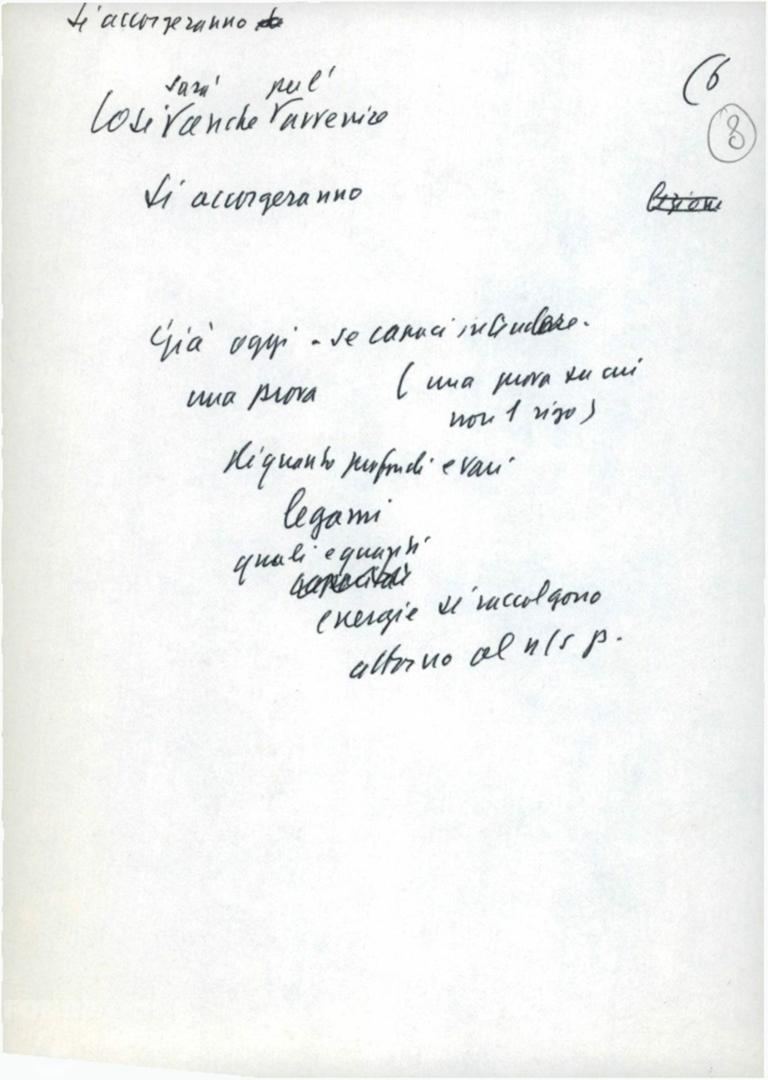 si accorgeranno
(6
8
sarà pel'
Così anche avvenire
si accorgeranno
Già oggi - se
una prova ( una prova su cui
non
di quanto profondi e vari
legami
quali e quante
energie si raccolgono
attorno al n/s p.